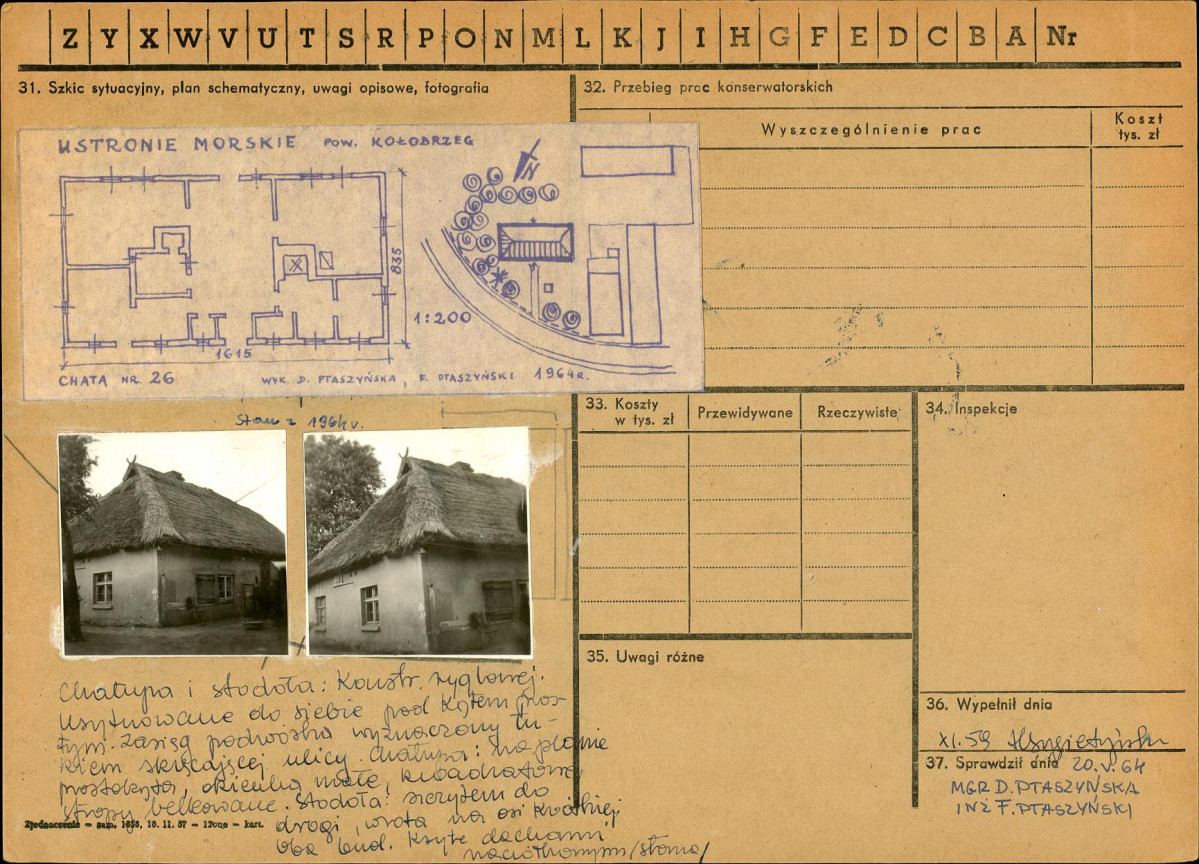 Z Y X W V U T S R P O N M L K J I H G F E D C B A Nr
31. Szkic sytuacyjny, plan schematyczny, uwagi opisowe, fotografia
USTRONIE MORSKIE POW. KOŁOBRZEG
N
835
1:200
1615
CHATA NR. 26
WYK. D. PTASZYŃSKA, F. PTASZYŃSKI 1964R.
Stan z 1964 r.
Chałupa i stodoła: Konstr. ryglowej.
Usytuowane do siebie pod kątem pros-
tym. Zasięg podwórka wyznaczony łu-
kiem skręcającej ulicy. Chałupa: na planie
prostokąta, okienka małe, kwadratowe,
stropy belkowane. Stodoła: szczytem do
drogi, wrota na osi krótkiej
Oba bud. kryte dachami
naciółkowymi /słoma/
Zjednoczenie — zam. 1636, 16. 11. 57 — 1ż000 — kart.
32. Przebieg prac konserwatorskich
Wyszczególnienie prac
Koszt
tys. zł
33. Koszty
w tys. zł
Przewidywane
Rzeczywiste
34. Inspekcje
35. Uwagi różne
36. Wypełnił dnia
XI.59
37. Sprawdził dnia 20.V.64
MGR D. PTASZYŃSKA
INŻ F. PTASZYŃSKI